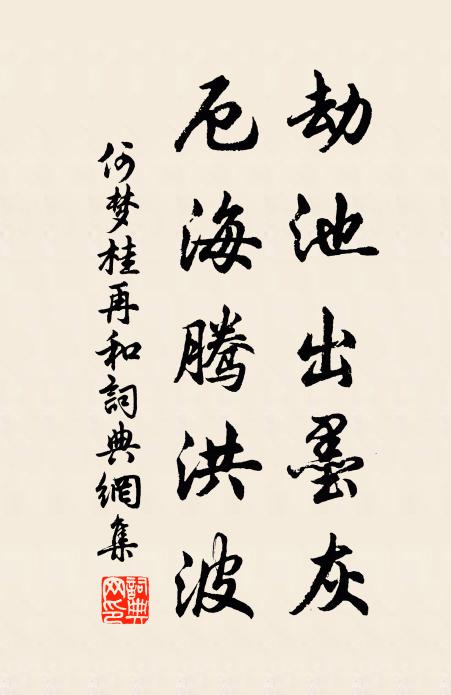 劫池出墨灰
厄海腾洪波
何梦桂再和詞典網集
詞典网印